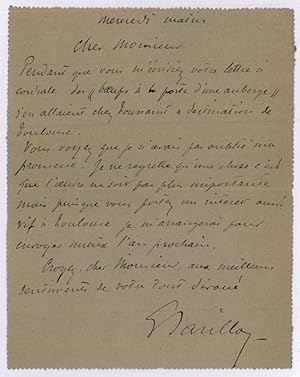 mercredi matin
Cher Monsieur
Pendant que vous m'écriviez votre lettre si
cordiale des "bœufs à la porte d'une auberge"
s'en allaient chez Toussaint à destination de
Toulouse.
Vous voyez que je n'avais pas oublié ma
promesse. Je ne regrette qu'une chose c'est
que l'œuvre ne soit pas plus importante
mais puisque vous portez un intérêt aussi
vif à Toulouse je m'arrangerai pour
envoyer mieux l'an prochain.
Croyez, cher Monsieur, aux meilleurs
sentiments de votre tout dévoué